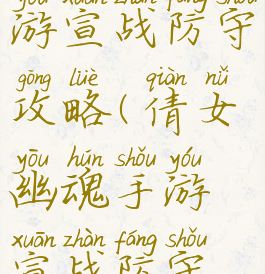 yóu xuān zhàn fáng shǒu
游宣战防守
gōng lüè qiàn nǚ
攻略(倩女
yōu hún shǒu yóu
幽魂手游
xuān zhàn fáng shǒu
宣战防守